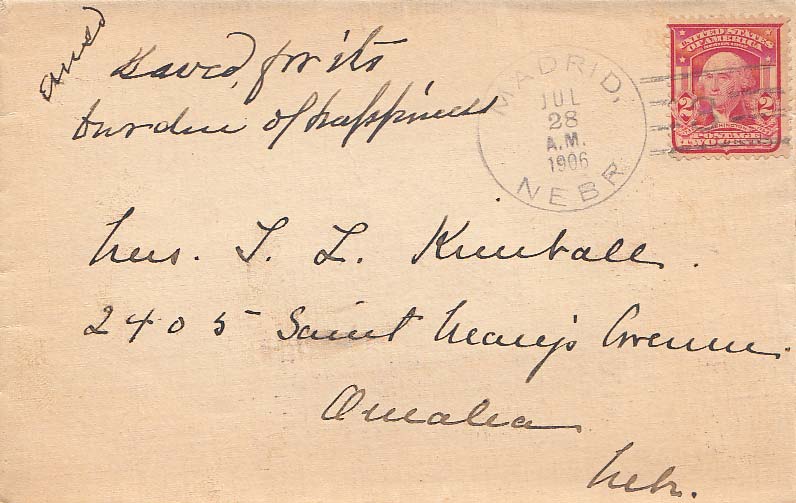 Saved, for its
burden of happiness
MADRID,
JUL
28
A.M.
1906
NEBR
UNITED STATES
OF AMERICA
2 2
POSTAGE
TWO CENTS
Mrs. T. L. Kimball.
2405 Saint Mary's Avenue.
Omaha
Nebr.